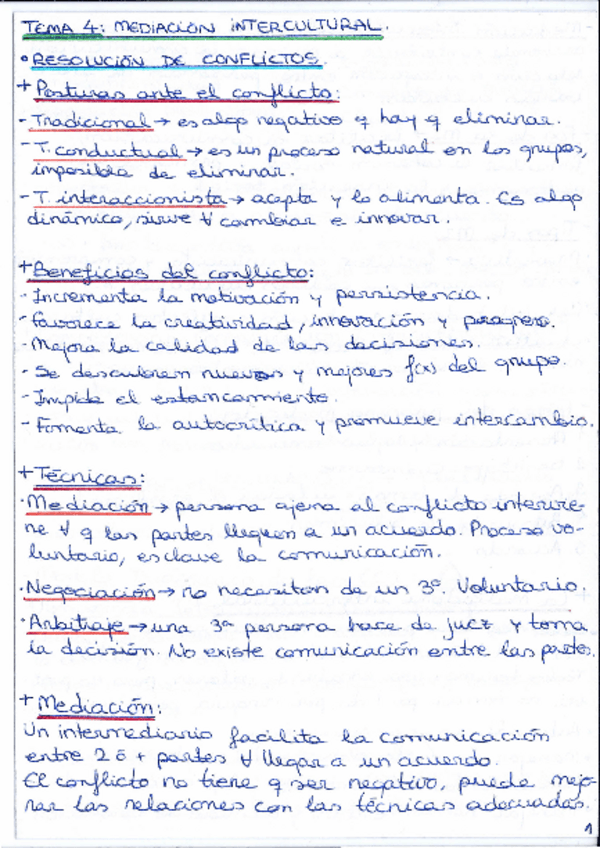 TEMA 4: MEDIACIÓN INTERCULTURAL.
• RESOLUCIÓN DE CONFLICTOS.
+ Posturas ante el conflicto:
- Tradicional → es algo negativo q hay q eliminar.
- T. conductual → es un proceso natural en los grupos,
imposible de eliminar.
- T. interaccionista → acepta y lo alimenta. Es algo
dinámico, sirve ∀ cambiar e innovar.
+ Beneficios del conflicto:
- Incrementa la motivación y persistencia.
- Favorece la creatividad, innovación y progreso.
- Mejora la calidad de las decisiones.
- Se descubren nuevos y mejores f(x) del grupo.
- Impide el estancamiento.
- Fomenta la autocrítica y promueve intercambio.
+ Técnicas:
· Mediación → persona ajena al conflicto intervie-
ne ∀ q las partes lleguen a un acuerdo. Proceso vo-
luntario, es clave la comunicación.
· Negociación → no necesitan de un 3º. Voluntario.
· Arbitraje → una 3ª persona hace de juez y toma
la decisión. No existe comunicación entre las partes.
+ Mediación:
Un intermediario facilita la comunicación
entre 2 ó + partes ∀ llegar a un acuerdo.
El conflicto no tiene q ser negativo, puede mejo-
rar las relaciones con las técnicas adecuadas.
1